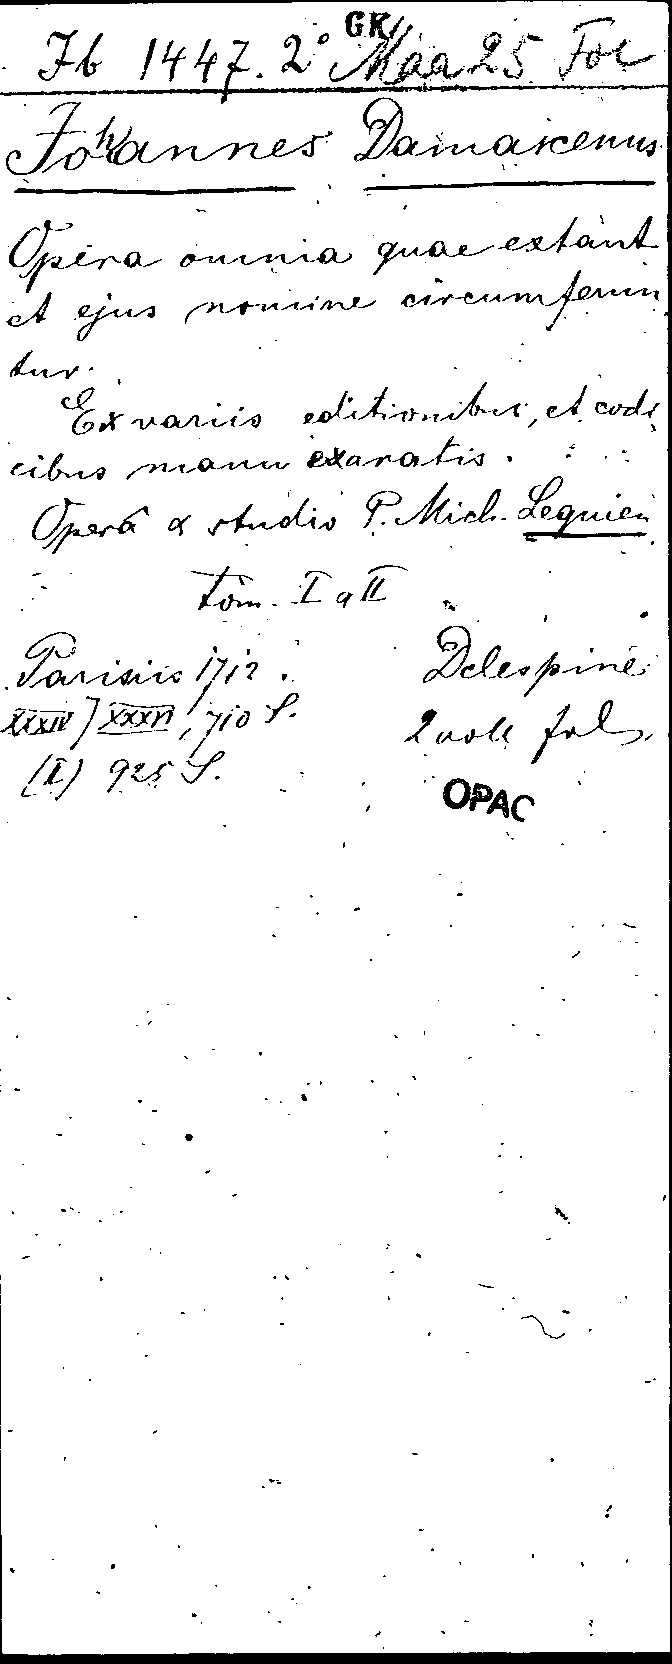 GK
Jb 1447. 2° Maa 25 Fol
Johannes Damascenus
Opera omnia quae extant
et ejus nomine circumferun
tur.
Ex variis editionibus, et codi
cibus manu exaratis.
Operâ & studio P. Mich. Lequien
tom. I a II
Parisiis 1712. Delespine
XXXIV] XXXVI, 710 S. 2 voll fol.
(II) 925 S.
OPAC